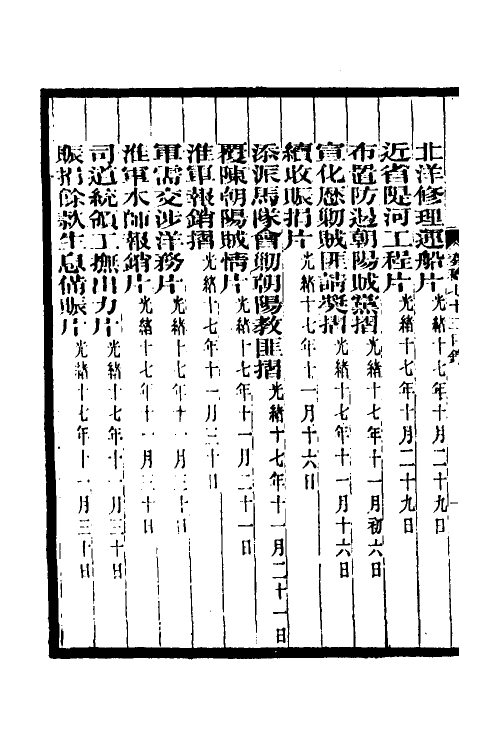 奏稿七十三目錄
一
北洋修理運船片光緒十七年十月二十九日
近省隄河工程片光緒十七年十月二十九日
布置防邊朝陽賊黨摺光緒十七年十一月初六日
宣化歷勦賊匪請獎摺光緒十七年十一月十六日
續收賑捐片光緒十七年十一月十六日
添派馬隊會勦朝陽教匪摺光緒十七年十一月二十一日
覆陳朝陽賊情片光緒十七年十一月二十一日
淮軍報銷摺光緒十七年十一月三十日
軍需交涉洋務片光緒十七年十一月三十日
淮軍水師報銷片光緒十七年十一月三十日
司道統領丁撫出力片光緒十七年十一月三十日
賑捐餘款生息備賑片光緒十七年十一月三十日